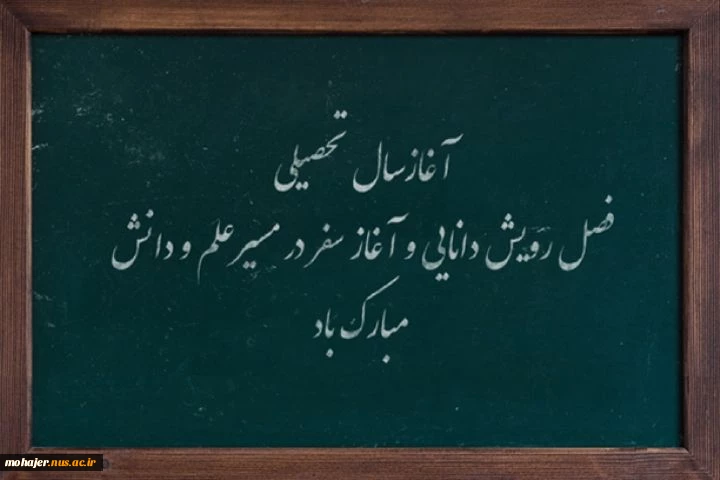 آغاز سال تحصیلی
فصل رویش دانایی و آغاز سفر در مسیر علم و دانش
مبارک باد
mohajer.nus.ac.ir